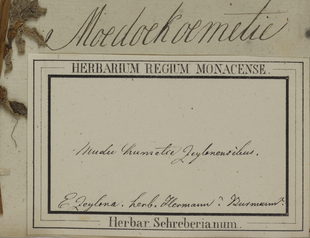 Moedoekoemetie
HERBARIUM REGIUM MONACENSE.
Mudu Kumetie Zeylonensibus.
E Zeylona. herb. Hermann? Burmann?
Herbar. Schreberianum.